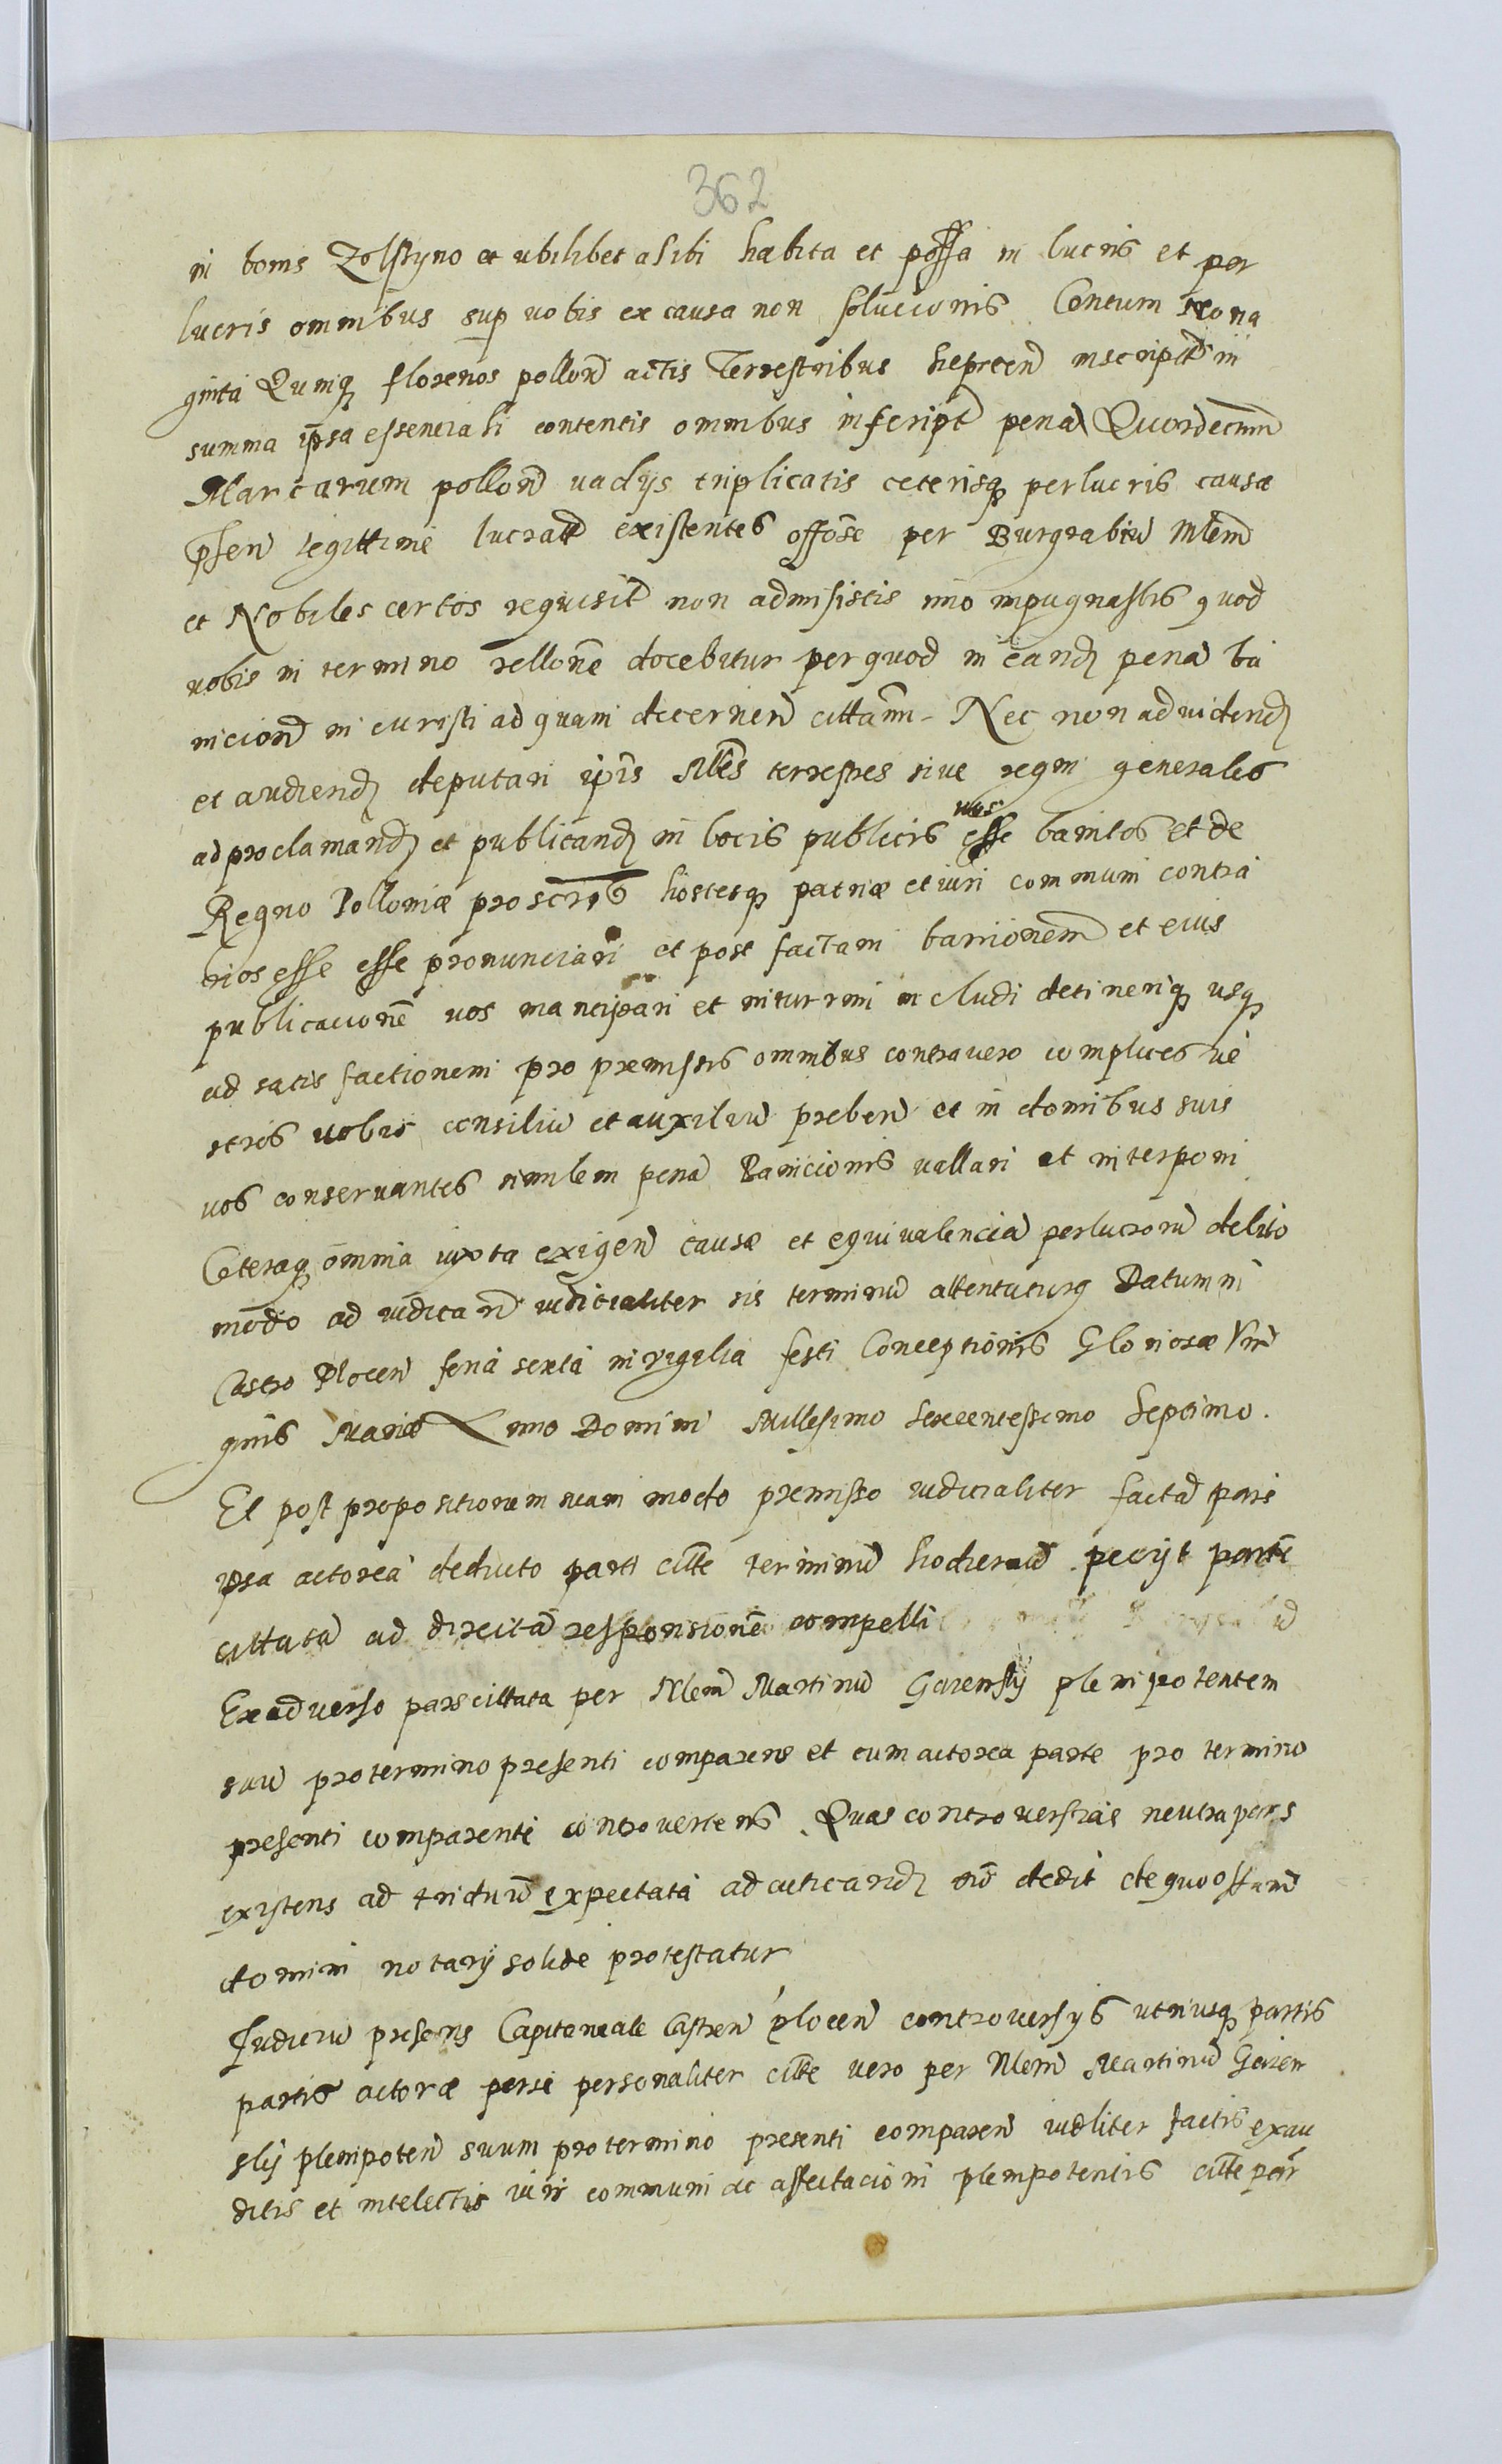 362
in bonis Zolstyno et ubilibet alibi habita et possa in lucris et per
lucris omnibus sup vobis ex causa non solucionis Centum Nona
ginta Quinq florenos pollon actis Terrestribus Sieprcen inscript in
summa ipsa essenciali contentis omnibus inscript pena Quordecim
Marcarum pollon vadys triplicatis ceterisq perlucris causæ
psen legittime lucrat existentes offose per Burgrabiu Mlem
et Nobiles certos requisit non admisistis imo impugnastis quod
vobis in termino rellone docebitur per quod in eand pena ba
nicion in curristi ad quam decernen cittamr Nec non ad vidend
et audiend deputari ipis Mles terrestres sive regni generales
ad proclamand et publicand in locis publicis vos esse banitos et de
Regno Polloniæ proscrip hostesq patriæ et iuri communi contra
rios esse esse pronunciari et post factam banionem et eius
publicacione vos mancipari et inturrim includi detineriq usq
ad satis factionem pro premissis omnibus contra vero complices ve
stros vobis consiliu et auxiliu preben et in domibus suis
vos conservantes similem pena Banicionis vallari et interponi
Ceteraq omnia iuxta exigen causæ et equivalencia perlucroru debito
modo ad iudican iudicialiter sis terminu attentaturg Datum in
Castro Plocen feria sexta in vigilia festi Conceptionis Gloriosæ Vir
ginis Mariæ Anno Domini Millesimo Sexcentessimo Septimo.
Et post propositionem suam modo premisso iudicialiter facta pars
ipsa actorea deducto parti citte terminu hodiernu pecijt parte
cittata ad directa responsione compelli
Ex adverso pars cittata per Mlem Martinu Gozensky plenipotentem
suu pro termino presenti comparens et cum actorea parte pro termino
presenti comparenti controvertens. Quas controversias neutra pars
existens ad triduu expectata ad acticand no dedit de quo offitiu
domini notarij solide protestatur
Judiciu presens Capitaneale Castren plocen controversys utriusq partis
partis actoræ per se personaliter citte vero per Mlem Martinu Gozen
sky plenipoten suum pro termino presenti comparen iudliter factis exau
ditis et intelectis iuri communi ac affectacioni plenipotentis citte par